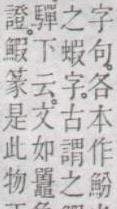 字句。各本作魵
之蝦字。古謂之
驒下云。文如鼉
證。鰕篆是此物